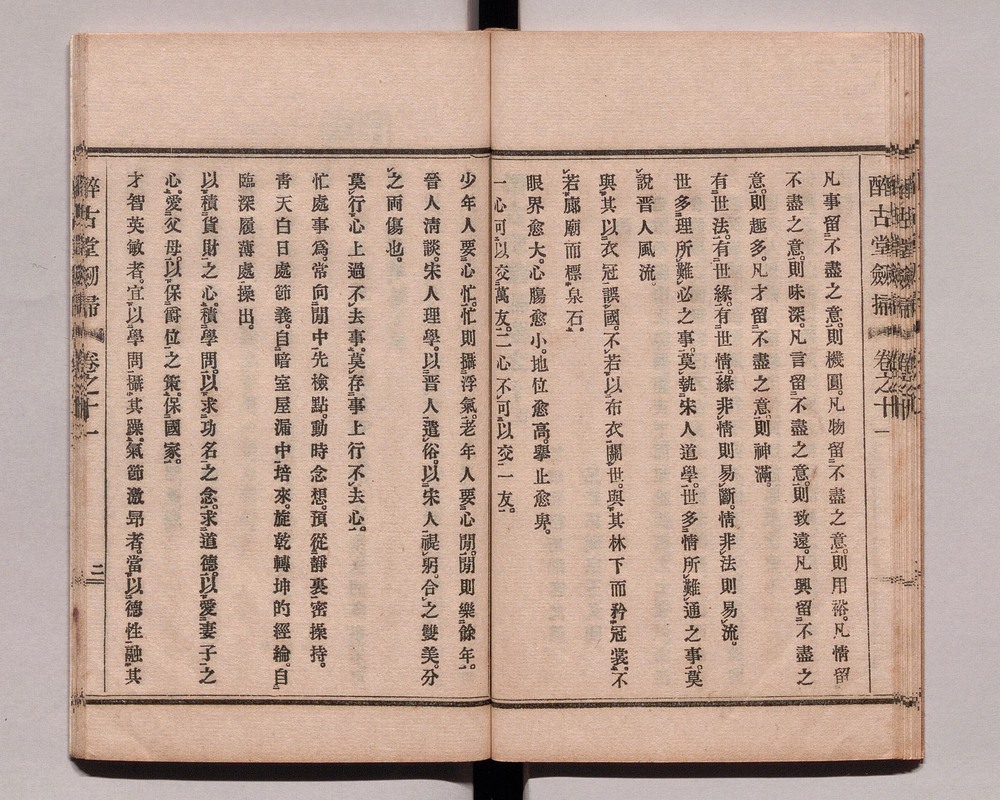 醉古堂劍掃 卷之十一
凡事留不盡之意。則機圓。凡物留不盡之意。則用裕。凡情留
不盡之意。則味深。凡言留不盡之意。則致遠。凡興留不盡之
意。則趣多。凡才留不盡之意。則神滿。
有世法。有世緣。有世情。緣非情則易斷。情非法則易流。
世多理所難必之事。莫執宋人道學。世多情所難通之事。莫
說晉人風流。
與其以衣冠誤國。不若以布衣關世。與其林下而矜冠裳。不
若廊廟而標泉石。
眼界愈大。心膓愈小。地位愈高。擧止愈卑。
一心可以交萬友。二心不可以交一友。
少年人要心忙。忙則攝浮氣。老年人要心閒。閒則樂餘年。
晉人淸談。宋人理學。以晉人遣俗。以宋人禔躬。合之雙美。分
之兩傷也。
莫行心上過不去事。莫存事上行不去心。
忙處事爲。常向閒中先檢點。動時念想。預從靜裏密操持。
靑天白日處節義。自暗室屋漏中培來。旋乾轉坤的經綸。自
臨深履薄處操出。
以積貨財之心。積學問。以求功名之念。求道德。以愛妻子之
心。愛父母。以保爵位之策。保國家。
才智英敏者。宜以學問攝其躁。氣節激昻者。當以德性融其
醉古堂劍掃 卷之十一
二